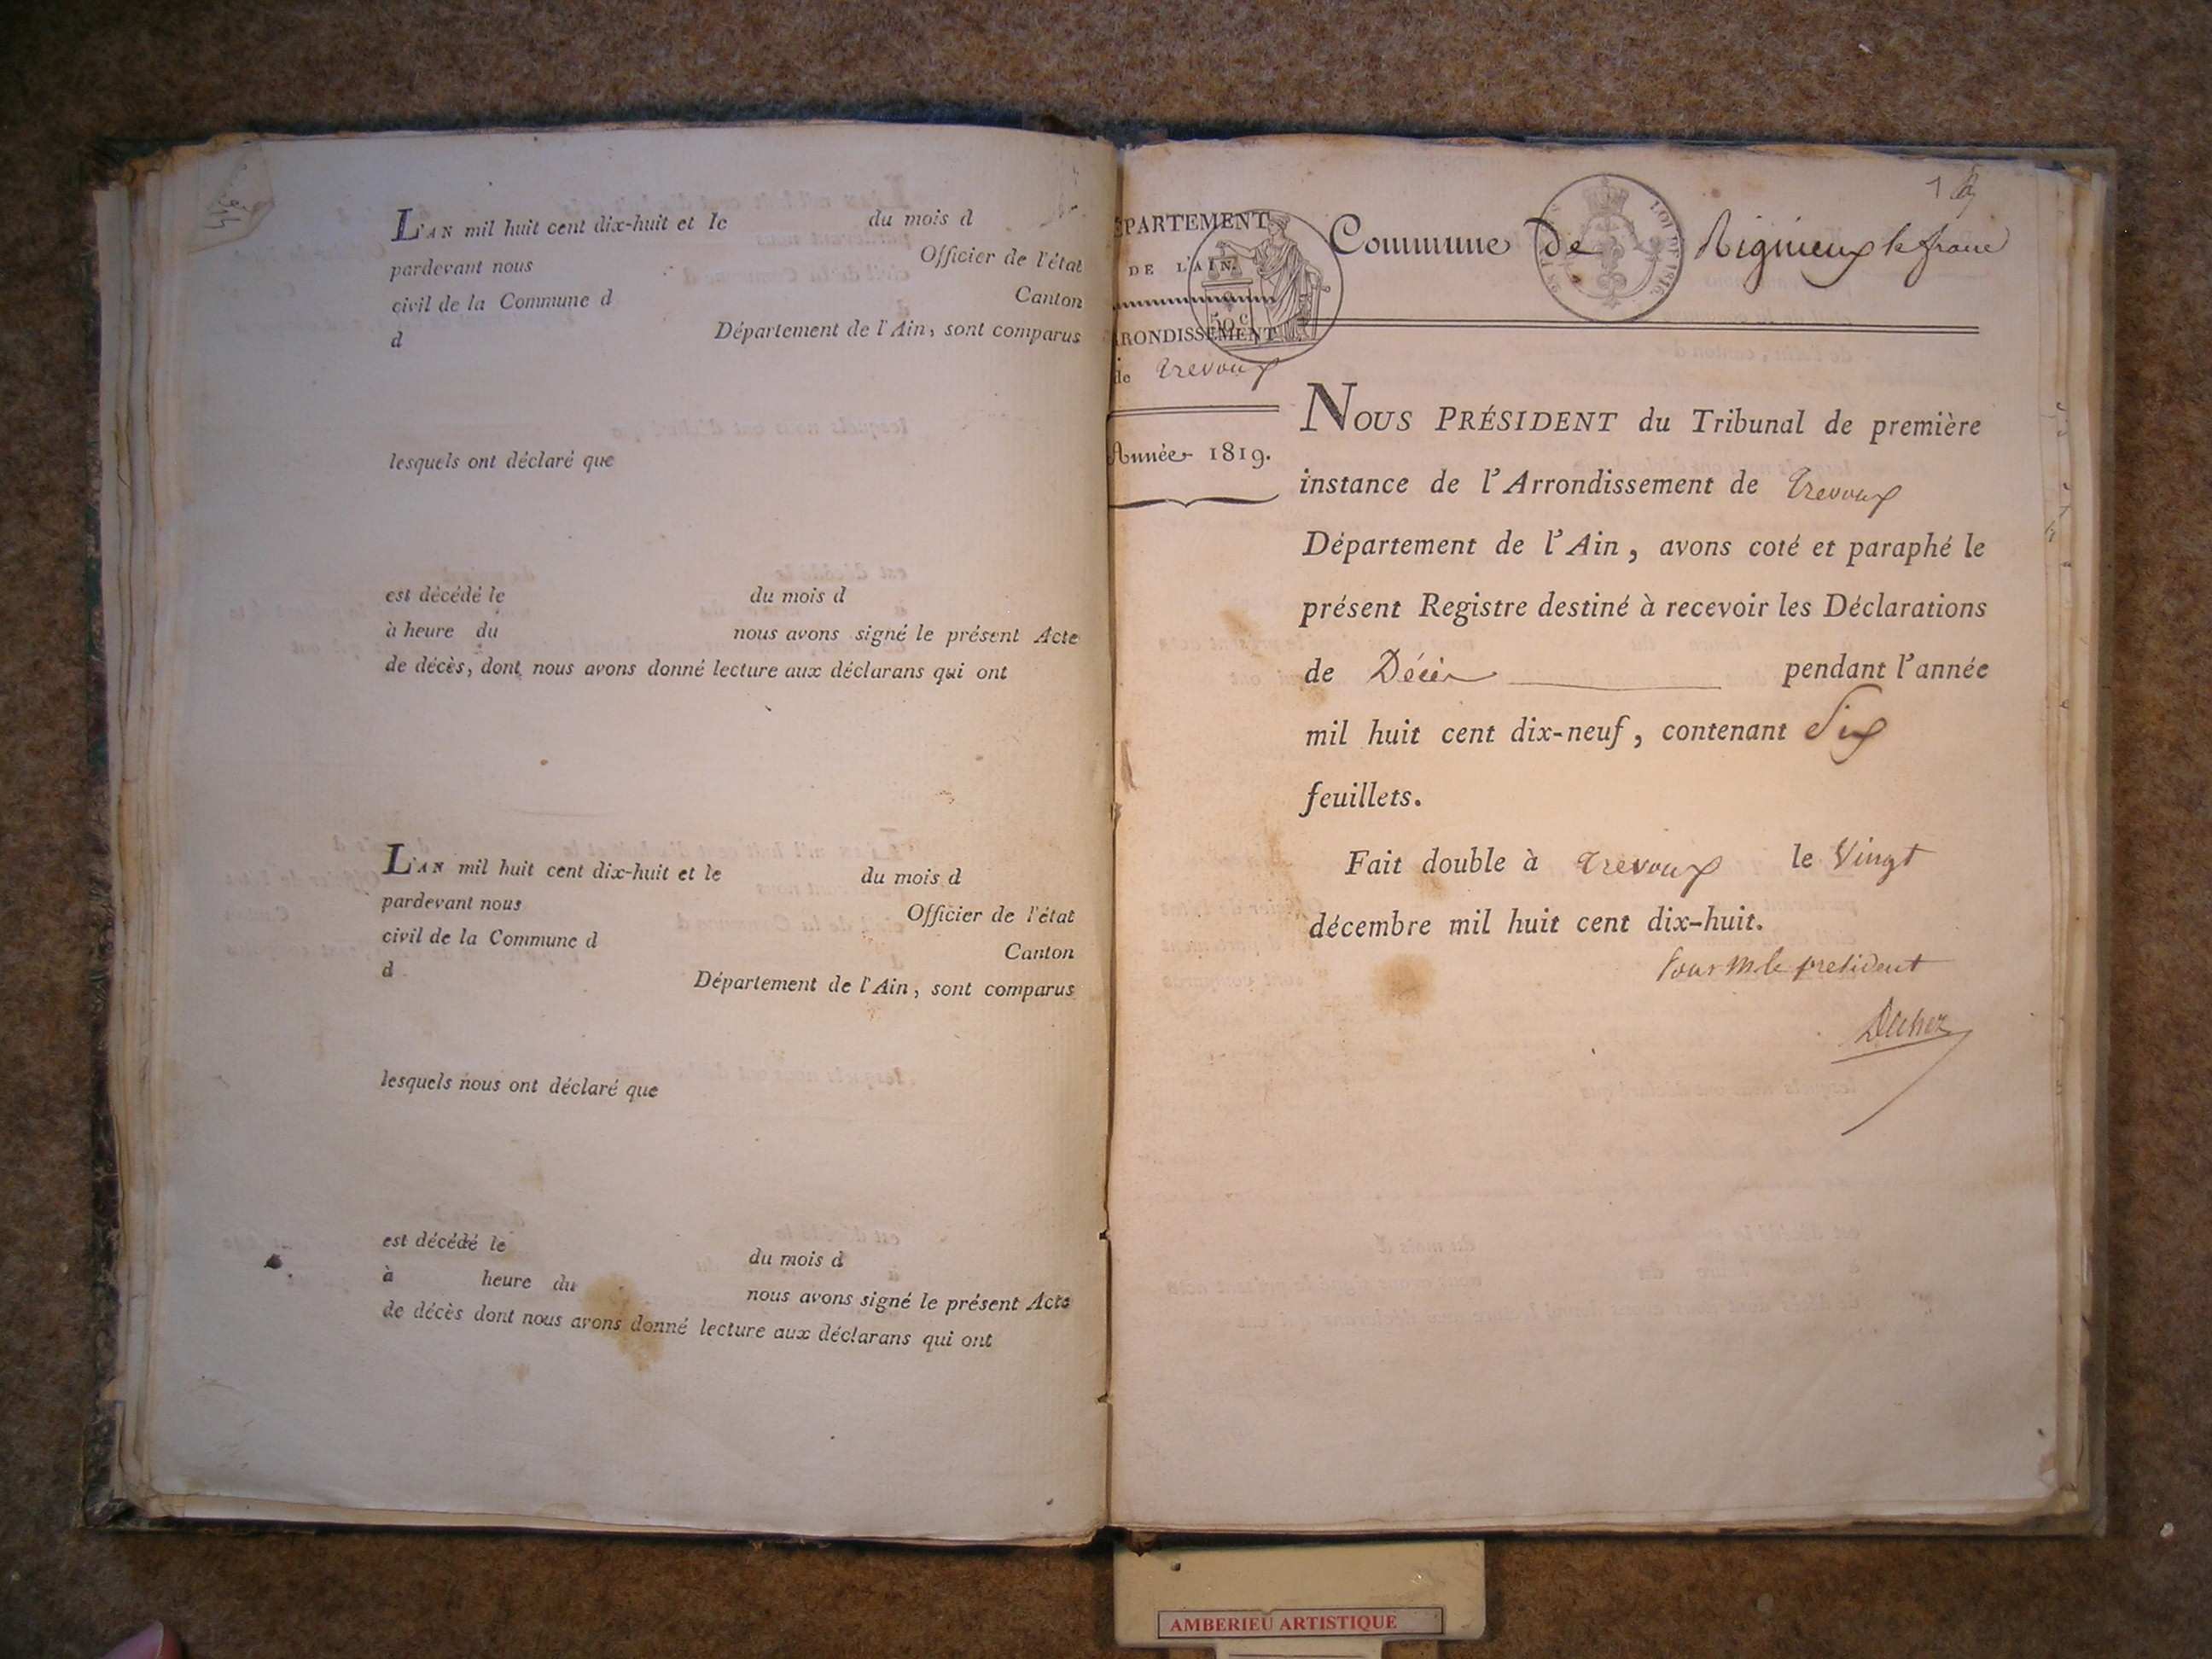 L'AN mil huit cent dix-huit et le du mois d
pardevant nous Officier de l'état
civil de la Commune d Canton
d Département de l'Ain, sont comparus
lesquels ont déclaré que
est décédé le du mois d
à heure du nous avons signé le présent Acte
de décès, dont nous avons donné lecture aux déclarans qui ont
L'AN mil huit cent dix-huit et le du mois d
pardevant nous Officier de l'état
civil de la Commune d Canton
d Département de l'Ain, sont comparus
lesquels nous ont déclaré que
est décédé le du mois d
à heure du nous avons signé le présent Acte
de décès dont nous avons donné lecture aux déclarans qui ont
ÉPARTEMENT
DE L'AIN.
RRONDISSEMENT
de Trevoux
Année 1819.
50 c
LOI DE 1816.
1
Commune de Rignieux le franc
NOUS PRÉSIDENT du Tribunal de première
instance de l'Arrondissement de Trevoux
Département de l'Ain, avons coté et paraphé le
présent Registre destiné à recevoir les Déclarations
de Décès pendant l'année
mil huit cent dix-neuf, contenant Six
feuillets.
Fait double à Trevoux le Vingt
décembre mil huit cent dix-huit.
Pour M le president
AMBERIEU ARTISTIQUE